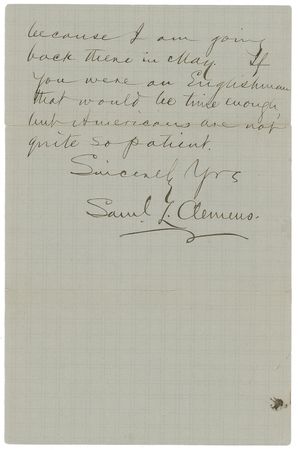 because I am going
back there in May. If
you were an Englishman
that would be time enough,
but Americans are not
quite so patient.
Sincerely Yrs
Saml. L. Clemens.